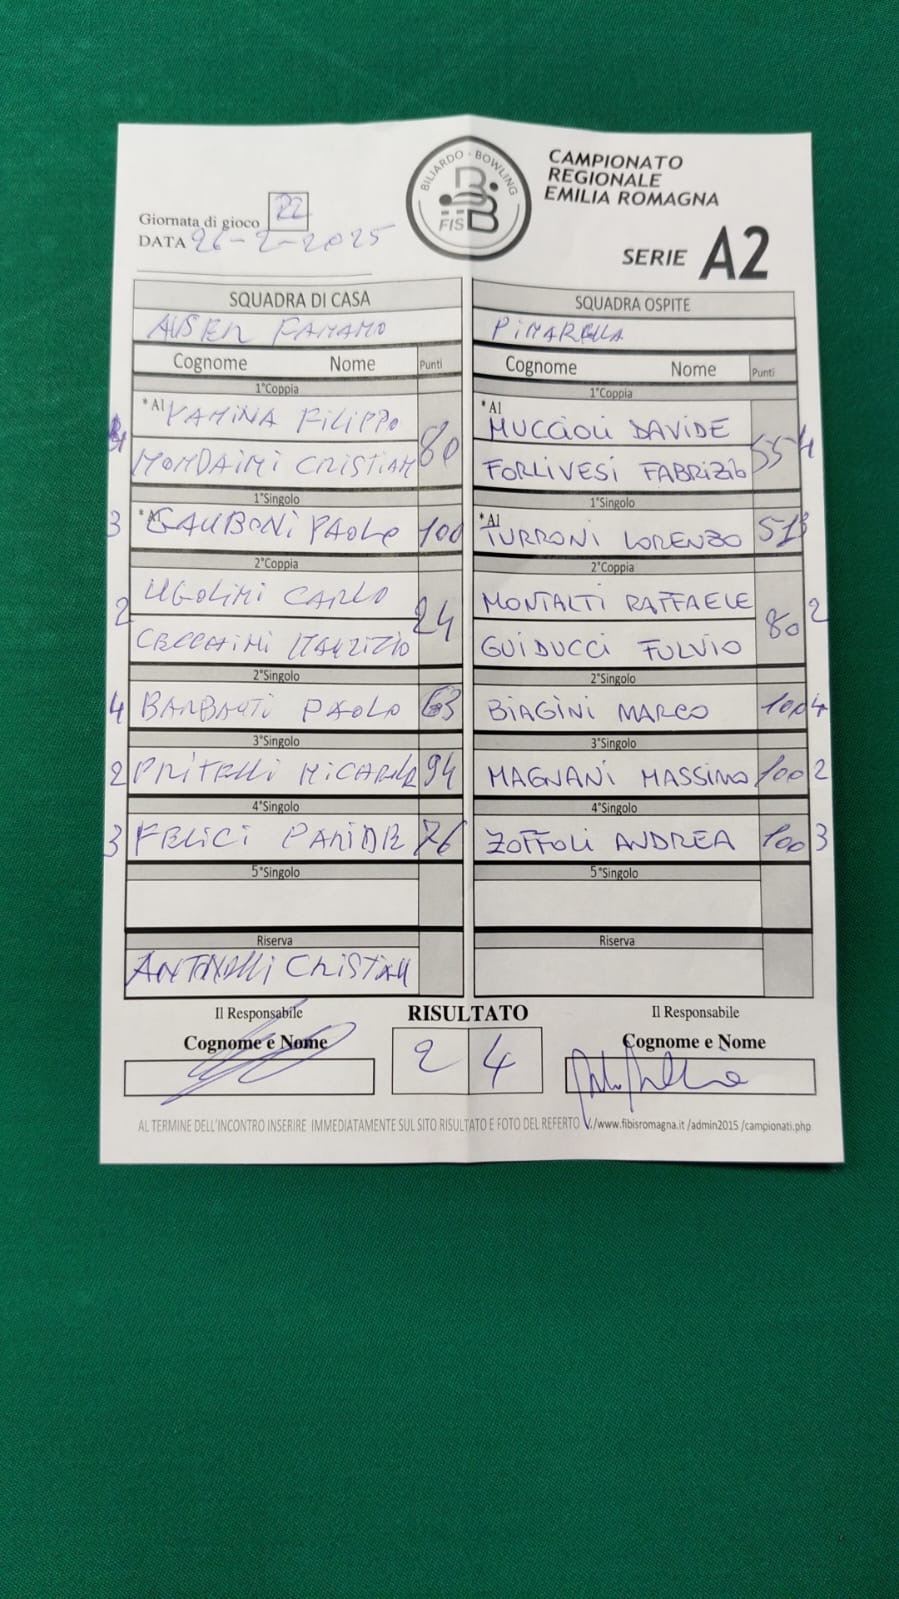 BILIARDO - BOWLING
FISBB
CAMPIONATO
REGIONALE
EMILIA ROMAGNA
SERIE A2
Giornata di gioco 22
DATA 26-2-2025
SQUADRA DI CASA
AUSER FAMAMO
Cognome Nome Punti
1°Coppia
4 *A1 VAMINA FILIPPO 80
MONDAIMI CRISTIAM
1°Singolo
3 *A1 GAUBONI PAOLO 100
2°Coppia
2 UGOLIMI CARLO 24
CECCHIMI MAURIZIO
2°Singolo
4 BARBANTI PAOLO 63
3°Singolo
2 PRITELLI 94
4°Singolo
3 FELICI DAVIDE 76
5°Singolo
Riserva
ANTONELLI CRISTIAN
SQUADRA OSPITE
PINARELLA
Cognome Nome Punti
1°Coppia
*A1 MUCCIOLI DAVIDE 55 4
FORLIVESI FABRIZIO
1°Singolo
*A1 TURRONI LORENZO 51 3
2°Coppia
MONTALTI RAFFAELE 80 2
GUIDUCCI FULVIO
2°Singolo
BIAGINI MARCO 100 4
3°Singolo
MAGNANI MASSIMO 100 2
4°Singolo
ZOFFOLI ANDREA 100 3
5°Singolo
Riserva
Il Responsabile
Cognome e Nome
RISULTATO
2 4
Il Responsabile
Cognome e Nome
AL TERMINE DELL'INCONTRO INSERIRE IMMEDIATAMENTE SUL SITO RISULTATO E FOTO DEL REFERTO /www.fibisromagna.it /admin2015 /campionati.php